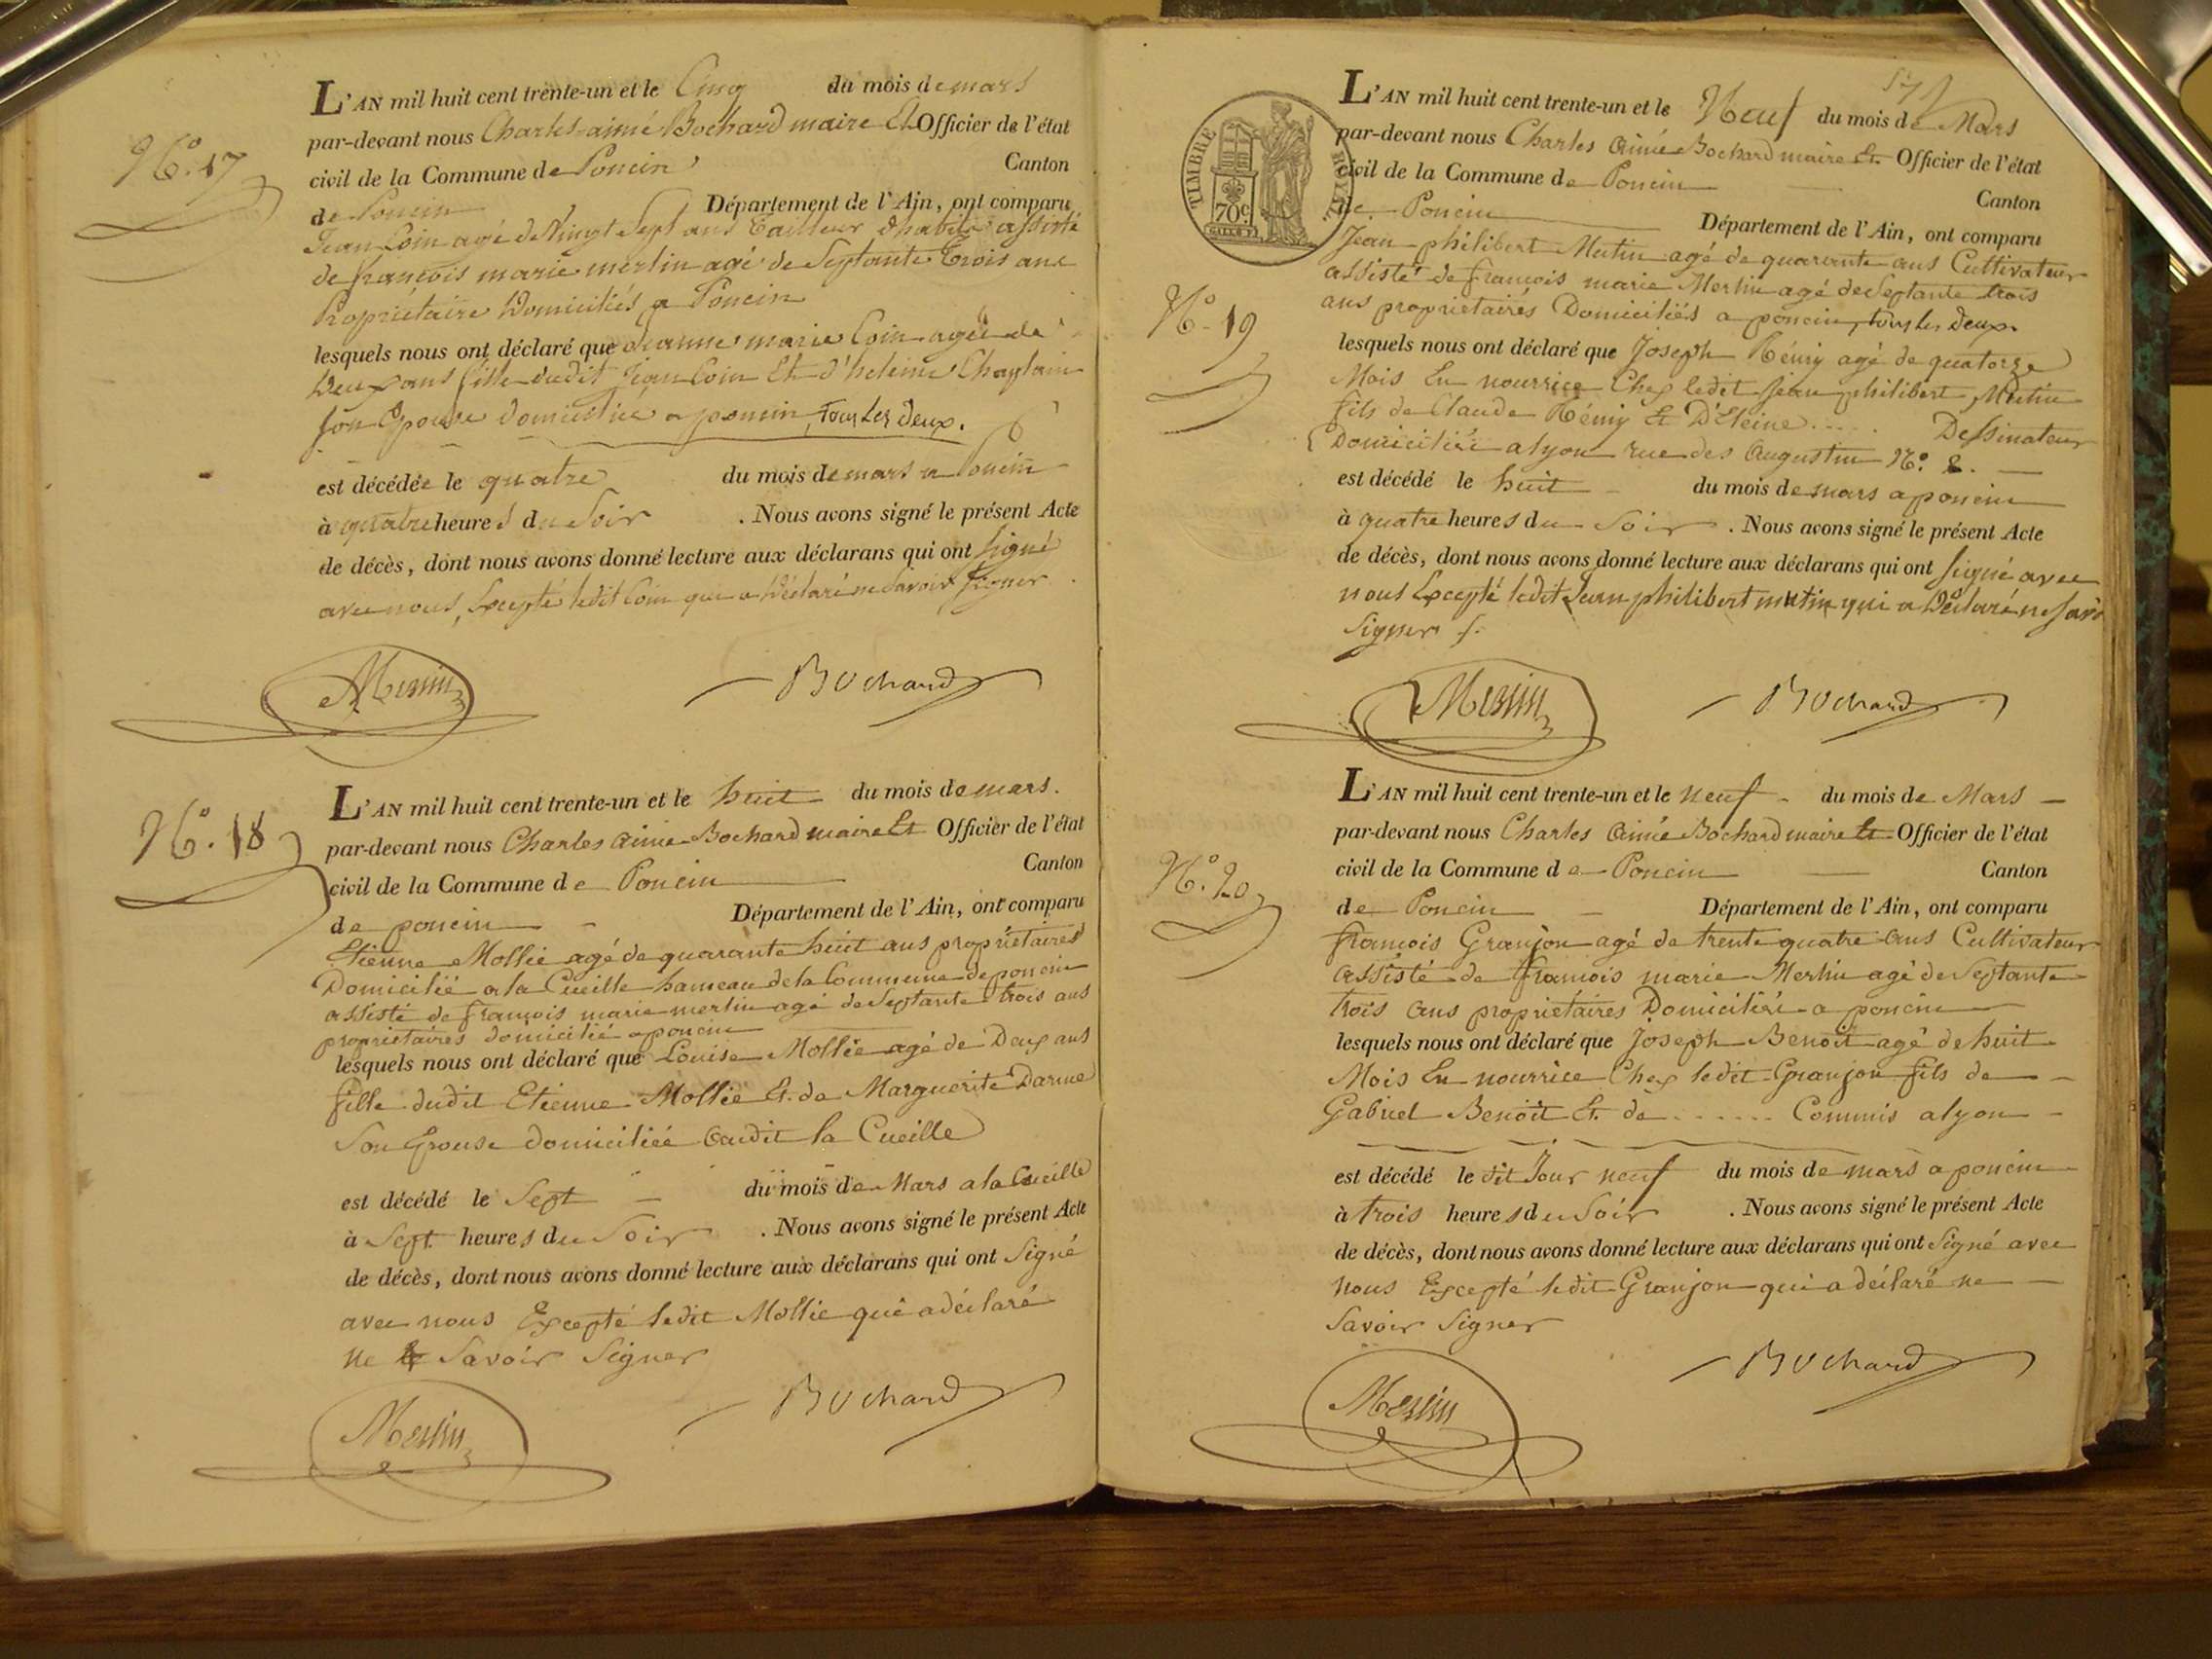 N.º 17
L'AN mil huit cent trente-un et le Cinq du mois de mars
par-devant nous Charles aimé Bochard maire Et Officier de l'état
civil de la Commune de Poncin Canton
de Poncin Département de l'Ain, ont comparu
Jean Coin agé de Vingt Sept ans Tailleur d'habits assisté
de françois marie merlin agé de Septante Trois ans
Propriétaire Domiciliés a Poncin
lesquels nous ont déclaré que Jeanne marie Coin agée de
Deux ans fille dudit Jean Coin Et d'helaine Chaplain
son Epouse domiciliée a poncin, tous les deux.
est décédée le quatre du mois de mars a Poncin
à quatre heures du Soir . Nous avons signé le présent Acte
de décès, dont nous avons donné lecture aux déclarans qui ont signé
avec nous, Excepté ledit Coin qui a Déclaré ne Savoir signer.
Merlin Bochard
N.º 18
L'AN mil huit cent trente-un et le huit du mois de mars.
par-devant nous Charles aimé Bochard maire Et Officier de l'état
civil de la Commune de Poncin Canton
de poncin Département de l'Ain, ont comparu
Etienne Mollie agé de quarante huit ans propriétaires
Domicilié a la Cueille hameau de la Commune de poncin
assisté de françois marie merlin agé de Septante trois ans
propriétaires domicilié a poncin
lesquels nous ont déclaré que Louise Mollie agé de Deux ans
fille dudit Etienne Mollie Et de Marguerite Darme
Son Epouse domiciliée audit la Cueille
est décédé le Sept du mois de Mars a la Cueille
à Sept heures du Soir . Nous avons signé le présent Acte
de décès, dont nous avons donné lecture aux déclarans qui ont Signé
avec nous Excepté ledit Mollie qui a déclaré
ne Savoir Signer
Merlin Bochard
TIMBRE ROYAL
70c
N.º 19
L'AN mil huit cent trente-un et le Neuf du mois de Mars
par-devant nous Charles aimé Bochard maire Et Officier de l'état
civil de la Commune de Poncin Canton
de Poncin Département de l'Ain, ont comparu
Jean philibert Mutin agé de quarante ans Cultivateur
assisté de françois marie Merlin agé de Septante trois
ans propriétaires Domiciliés a poncin, tous les deux.
lesquels nous ont déclaré que Joseph Rémy agé de quatorze
Mois En nourrice Chez ledit Jean philibert Mutin
fils de Claude Rémy Et D'Eleine..... Dessinateur
Domiciliée a lyon rue des Augustin N.º 2.
est décédé le huit du mois de mars a poncin
à quatre heures du Soir . Nous avons signé le présent Acte
de décès, dont nous avons donné lecture aux déclarans qui ont signé avec
nous Excepté ledit Jean philibert mutin qui a Déclaré ne savoir
Signer
Merlin Bochard
N.º 20
L'AN mil huit cent trente-un et le neuf du mois de Mars
par-devant nous Charles Aimée Bochard maire Et Officier de l'état
civil de la Commune de Poncin Canton
de Poncin Département de l'Ain, ont comparu
françois Granjon agé de trente quatre ans Cultivateur
assisté de françois marie Merlin agé de Septante
trois ans propriétaires Domiciliés a poncin
lesquels nous ont déclaré que Joseph Benoit agé de huit
Mois En nourrice Chez ledit Granjon fils de
Gabriel Benoit Et de ...... Commis a lyon
est décédé le dit Jour neuf du mois de mars a poncin
à trois heures du Soir . Nous avons signé le présent Acte
de décès, dont nous avons donné lecture aux déclarans qui ont Signé avec
nous Excepté ledit Granjon qui a déclaré ne
Savoir Signer
Merlin Bochard